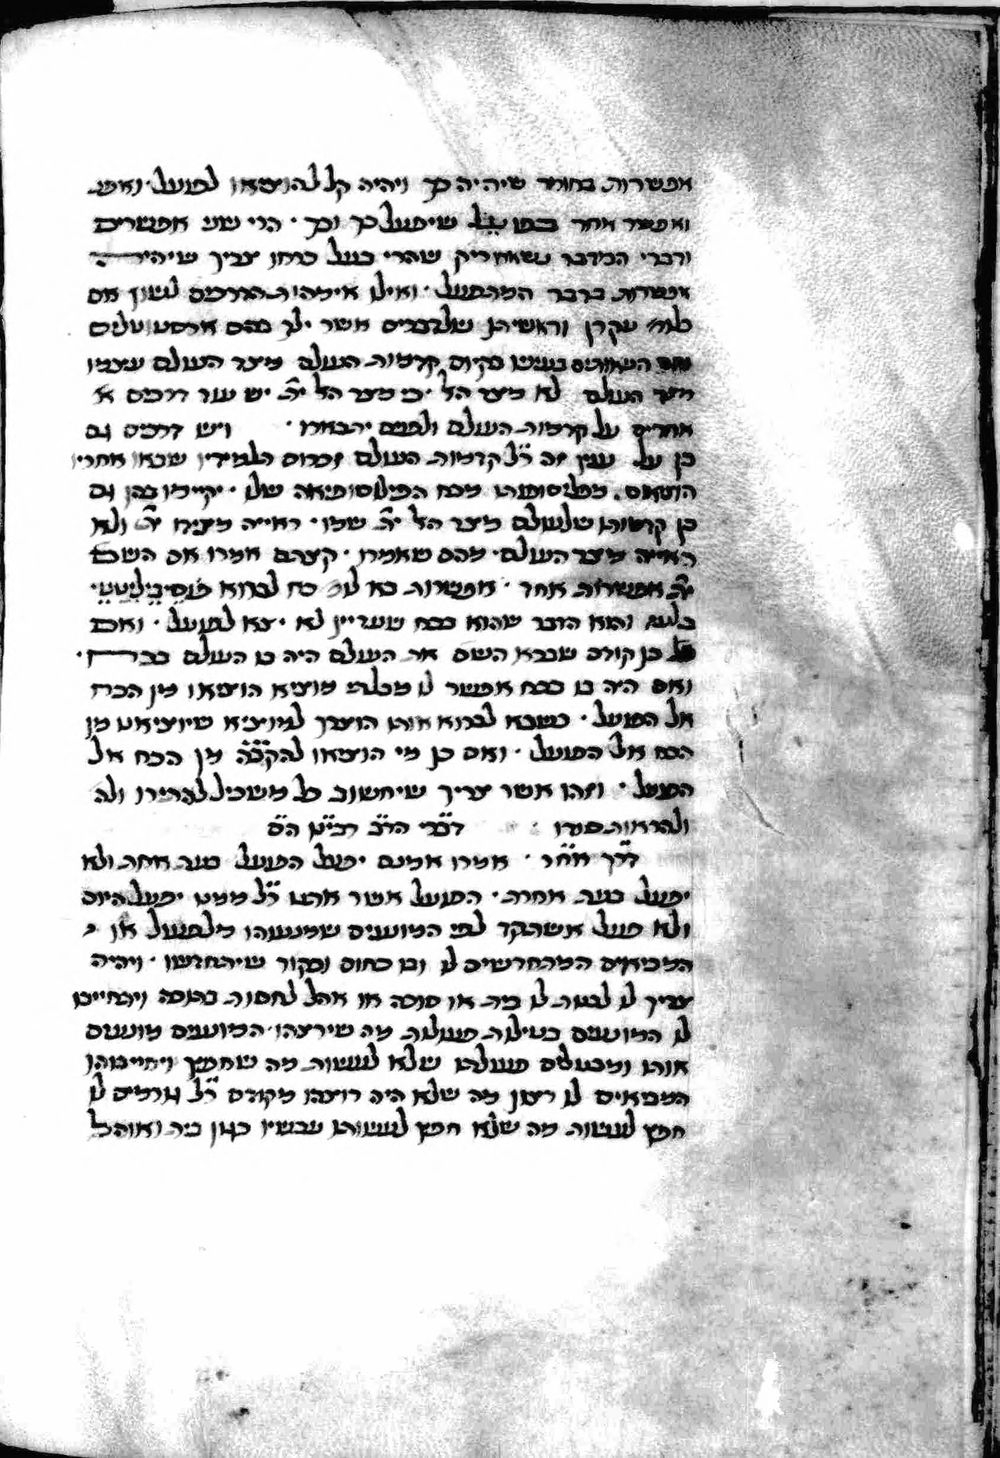 אפשרות בחומר שיהיה כך ויהיה קל להוציאו לפועל ואפש
ואפשר אחד בפועל שיפעל כך וכך · הרי שני אפשרים
ודברי המדבר שהרי בעל כרחו צריך שיהיה
אפשרות בדבר המתפעל · ואילו אימהות הדרכים לשון אם
כלו׳ עקרן וראשיתן שלדברים אשר ילך בהם אריסטוטלים
בקיום קדמות העולם מצד העולם עצמו
מצד העולם לא מצד האל · כי מצד האל ית׳ יש עוד דרכים א
אחרים על קדמות העולם ולפנים יתבארו · ויש דרכים גם
כן על ענין זה ר״ל קדמות העולם זכרום תלמידיו שבאו אחריו
הוציאום מפלוסופתו מכח הפילוסופיאה שלו · יקיימו בהן גם
כן קדמותו שלעולם מצד האל ית׳ שמו · ראייה מצידו ית׳ ולא
ראייה מצד העולם · מהם שאמרו · קצתם אמרו אם השם
ית׳ אפשרות אחד · אפשרות בא לו׳ כח לברוא
בלעז והוא הדבר שהוא בכח שעדיין לא יצא לפועל · ואם
כן קודם שברא השם את העולם היה בו העולם בכח ·
ואם היה בו בכח אפשר לו מבלתי מוציא הוציאו מן הכח
אל הפועל · כשבא לברוא אותו הוצרך למוציא שיוציאנו מן
הכח אל הפועל · ואם כן מי הוציאו להקב״ה מן הכח אל
הפועל · וזהו אשר צריך שיחשוב כל משכיל להתירו ולה
ולהראות סודו · דברי הרב רבינו הם
דרך אחר · אמרו אמנם יפעל הפועל בעת אחת ולא
יפעל בעת אחרת · הפועל אשר אתנו ר״ל ממנו יפעל היום
ולא פעל אשתקד לפי המונעים שמנעוהו מלפעול או
המביאים המתחדשים לו ובו כחום וכקור שיתחדשו · ויהיה
צריך לו לבנות לו בית או סוכה או אהל לחסות בתוכה ויתחייבו
לו המונעים בטילות פעולות מה שירצהו · המונעים מונעים
אותו ומבטלים פעולתו שלא לעשות מה שחפץ ויחייבוהו
המביאים לו רצון מה שלא היה רוצהו מקודם ר״ל גורמים לו
חפץ לעשות מה שלא חפץ לעשותו עכשיו כגון בית ואוהל